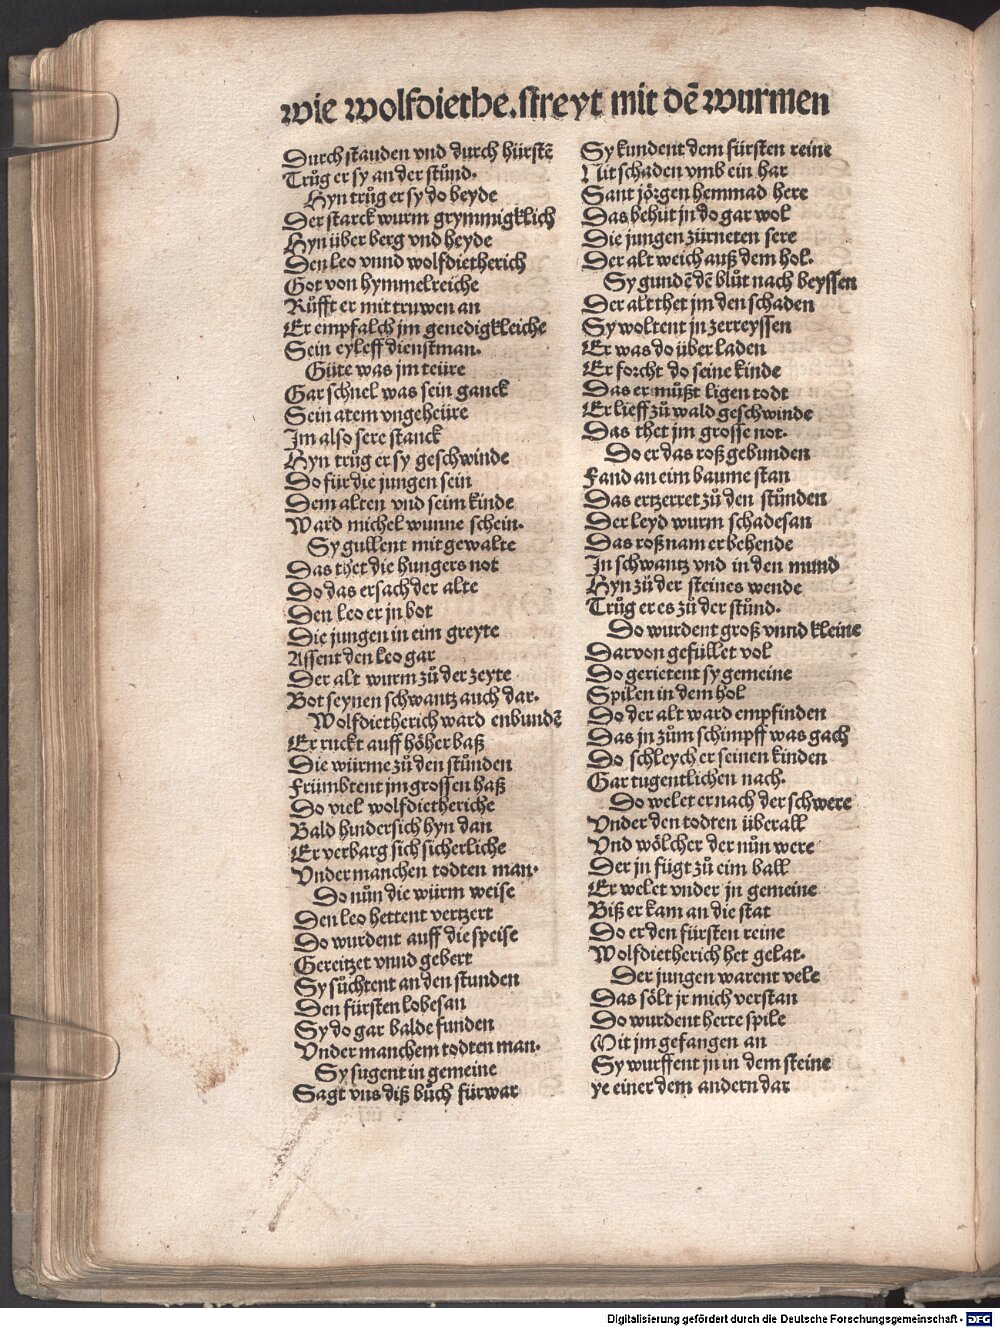 wie wolfdiethe. streyt mit dē wurmen
Durch stauden vnd durch hürstē
Trůg er sy an der stůnd.
Hyn trůg er sy do beyde
Der starck wurm grymmigklich
Hyn über berg vnd heyde
Den leo vnnd wolfdietherich
Got von hymmelreiche
Růfft er mit truwen an
Er empfalch jm genedigkleiche
Sein eyleff dienstman.
Güte was jm teüre
Gar schnel was sein ganck
Sein atem vngeheüre
Im also sere stanck
Hyn trůg er sy geschwinde
Do für die jungen sein
Dem alten vnd seim kinde
Ward michel wunne schein.
Sy gullent mit gewalte
Das thet die hungers not
Do das ersach der alte
Den leo er jn bot
Die jungen in eim greyte
Assent den leo gar
Der alt wurm zů der zeyte
Bot seynen schwantz auch dar.
Wolfdietherich ward enbundē
Er ruckt auff höher baß
Die würme zů den stůnden
Frümbtent jm grossen haß
Do viel wolfdietheriche
Bald hindersich hyn dan
Er verbarg sich sicherliche
Vnder manchen todten man.
Do nůn die würm weise
Den leo hettent vertzert
Do wurdent auff die speise
Gereitzet vnnd gebert
Sy sůchtent an den stunden
Den fürsten lobesan
Sy do gar balde funden
Vnder manchem todten man.
Sy sugent in gemeine
Sagt vns diß bůch fürwar
Sy kundent dem fürsten reine
Nit schaden vmb ein har
Sant jörgen hemmad here
Das behůt jn do gar wol
Die jungen zürneten sere
Der alt weich auß dem hol.
Sy gundē dē blůt nach beyssen
Der alt thet jm den schaden
Sy woltent jn zerreyssen
Er was do über laden
Er forcht do seine kinde
Das er můßt ligen todt
Er lieff zů wald geschwinde
Das thet jm grosse not.
Do er das roß gebunden
Fand an eim baume stan
Das ertzerret zů den stůnden
Der leyd wurm schadesan
Das roß nam er behende
In schwantz vnd in den mund
Hyn zů der steines wende
Trůg er es zů der stůnd.
Do wurdent groß vnnd kleine
Darvon gefüllet vol
Do gerietent sy gemeine
Spilen in dem hol
Do der alt ward empfinden
Das jn zům schimpff was gach
Do schleych er seinen kinden
Gar tugentlichen nach.
Do welet er nach der schwere
Vnder den todten überall
Vnd wölcher der nůn were
Der jn fügt zů eim ball
Er welet vnder jn gemeine
Biß er kam an die stat
Do er den fürsten reine
Wolfdietherich het gelat.
Der jungen warent vele
Das sölt jr mich verstan
Do wurdent herte spile
Mit jm gefangen an
Sy wurffent jn in dem steine
ye einer dem andern dar
Digitalisierung gefördert durch die Deutsche Forschungsgemeinschaft - DFG